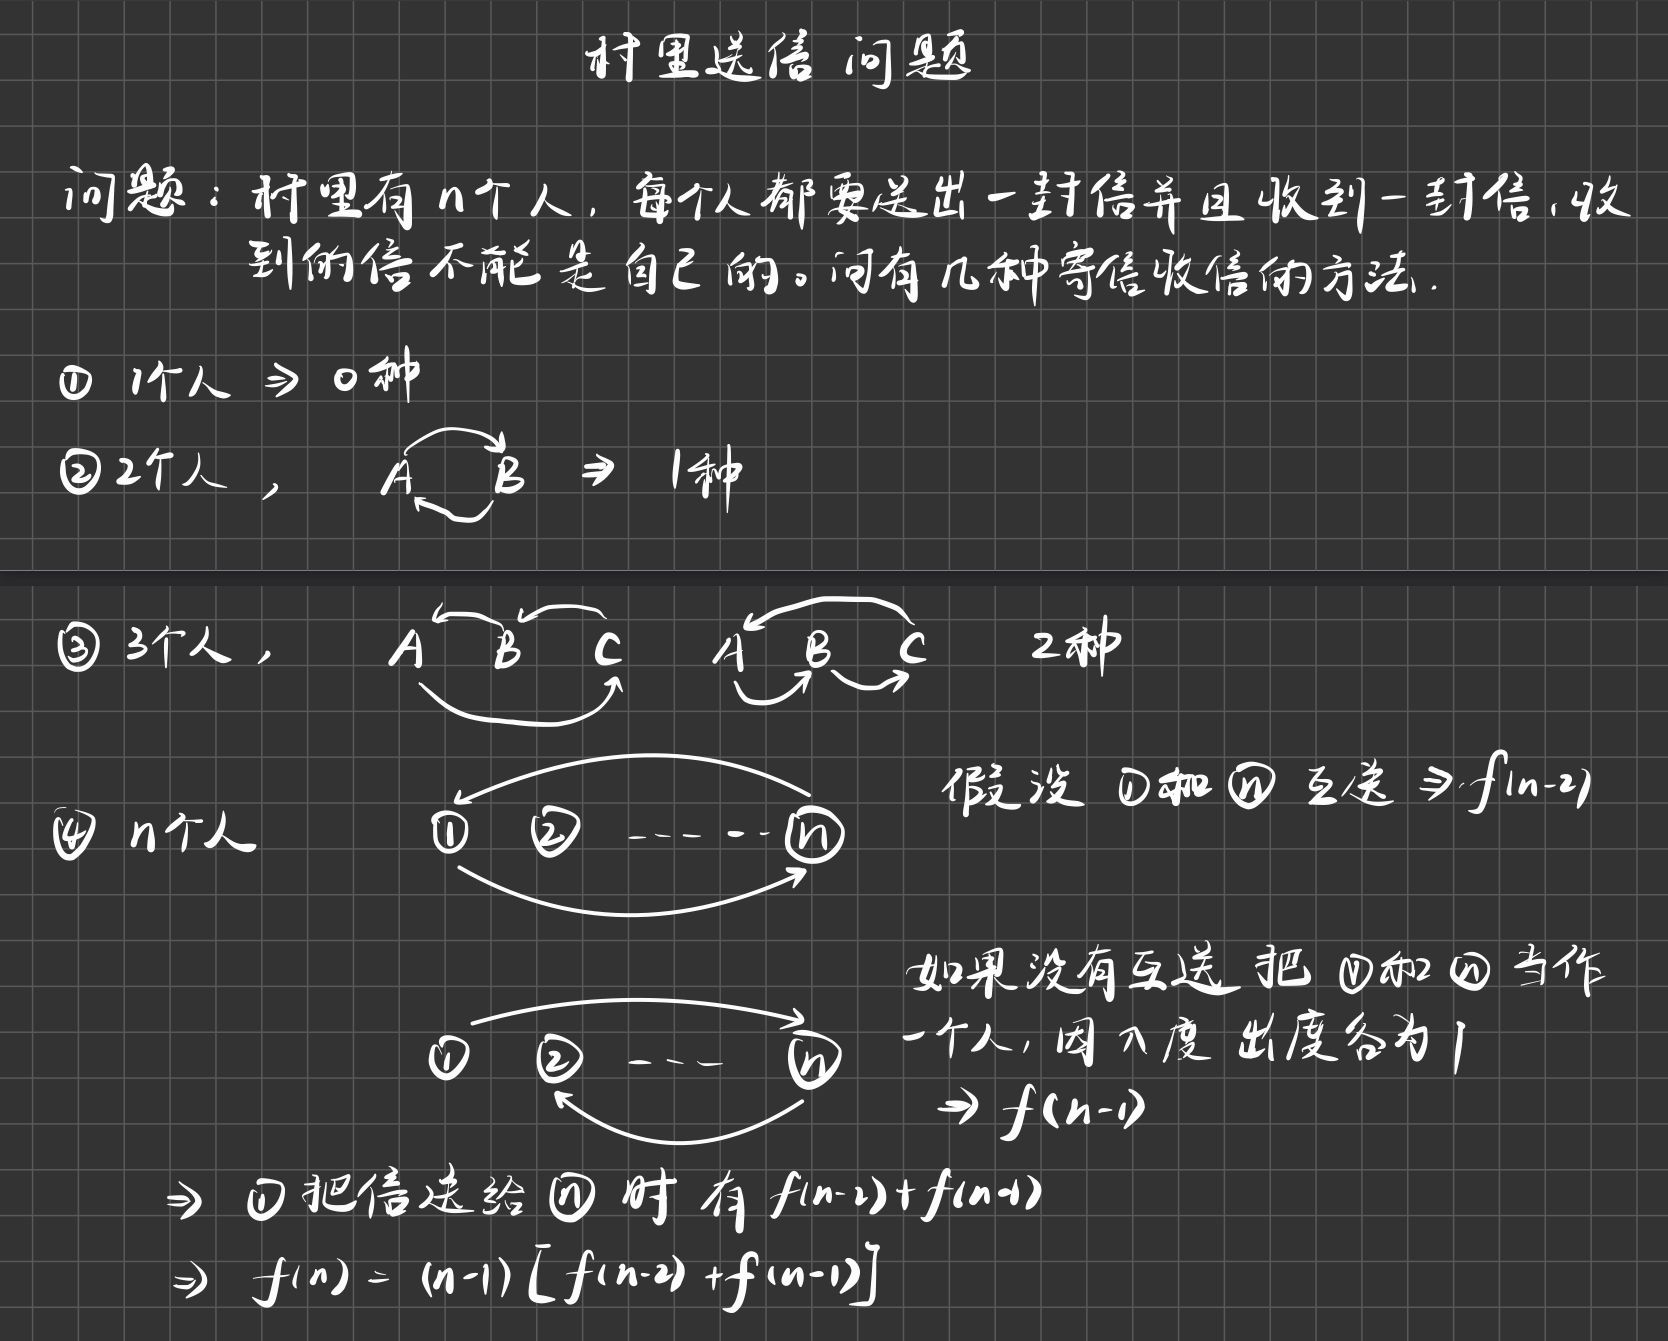 村里送信问题
问题：村里有n个人，每个人都要送出一封信并且收到一封信，收
到的信不能是自己的。问有几种寄信收信的方法.
① 1个人 ⇒ 0种
② 2个人， A B ⇒ 1种
③ 3个人， A B C A B C 2种
假设 ①和ⓝ 互送 ⇒ f(n-2)
④ n个人 ① ② ----- ⓝ
如果没有互送 把 ①和ⓝ 当作
一个人，因入度 出度各为1
① ② --- ⓝ
⇒ f(n-1)
⇒ ①把信送给ⓝ时有 f(n-2)+f(n-1)
⇒ f(n) = (n-1)[f(n-2)+f(n-1)]